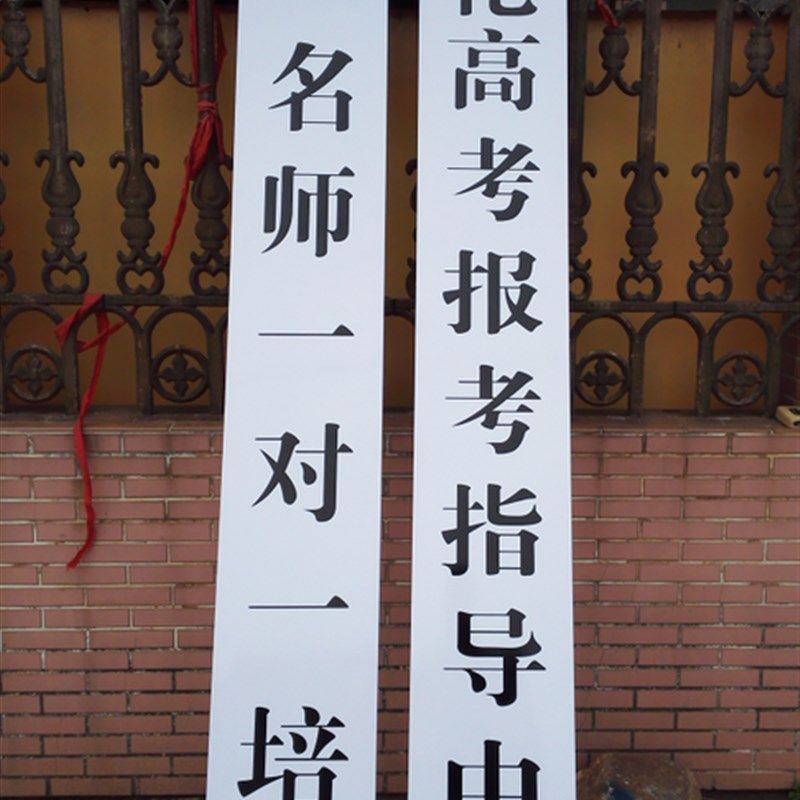 名师一对一培
高考报考指导中